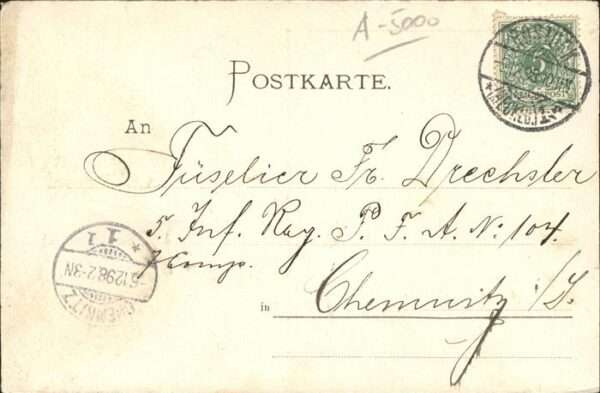 A-5000
POSTKARTE.
An
Füselier Fr. Drechsler
5. Inf. Reg. P. F. A. No: 104.
7 Comp.
in Chemnitz i/S.
CHEMNITZ
1
6.12.98.2-3N